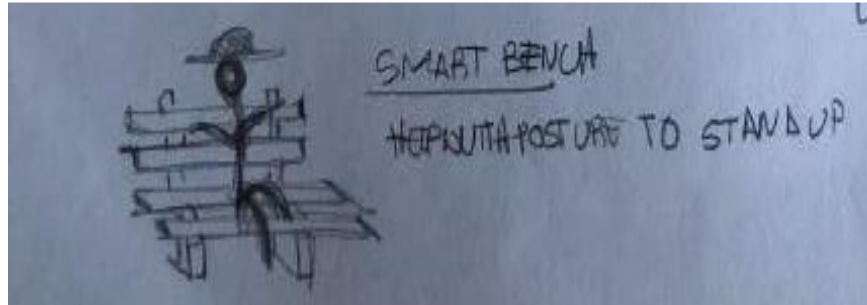 SMART BENCH
HELP WITH POSTURE TO STAND UP